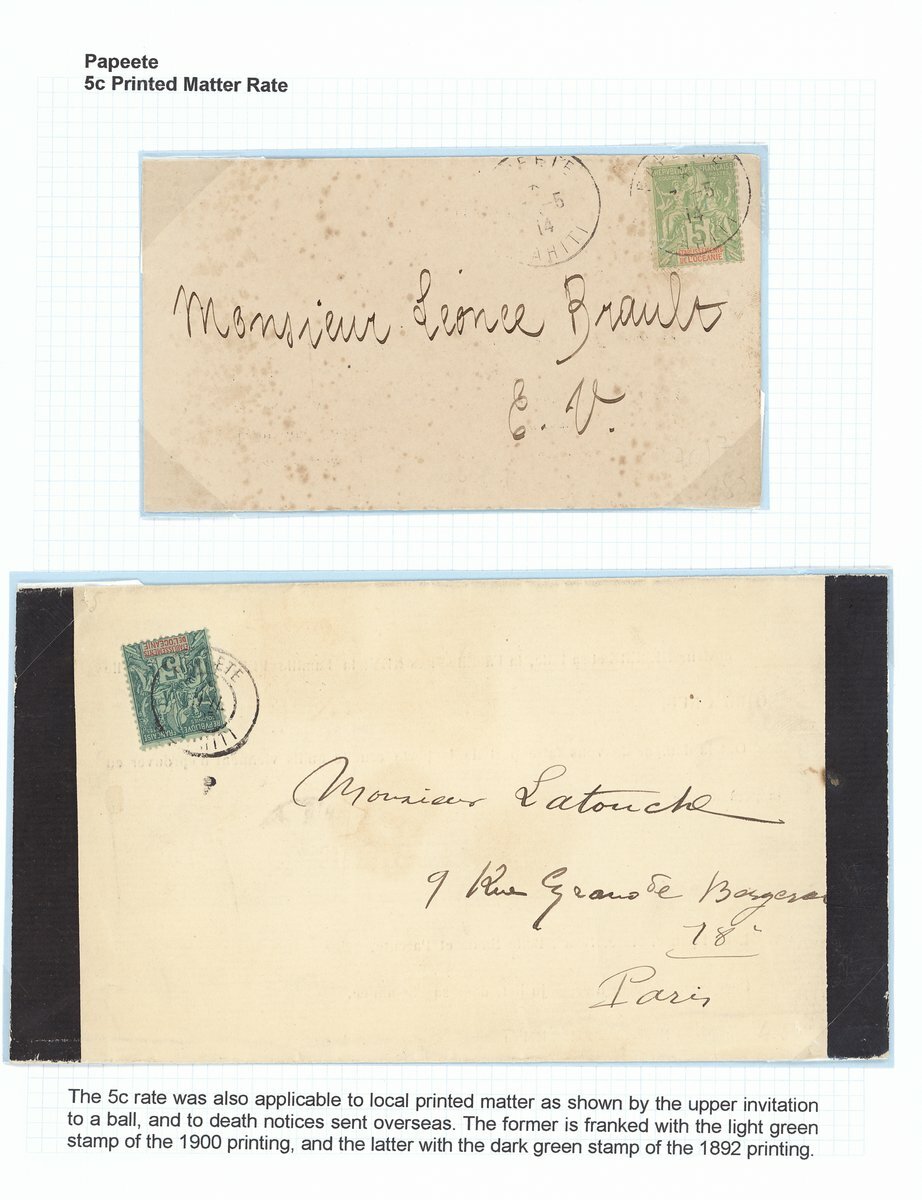 Papeete
5c Printed Matter Rate
PAPEETE
-5
14
TAHITI
REPUBLIQUE FRANÇAISE
5
ETABLISSEMENTS
DE L'OCEANIE
Monsieur Léonce Brault
E. V.
ETABLISSEMENTS
DE L'OCEANIE
5
REPUBLIQUE FRANÇAISE
PAPEETE
TAHITI
Monsieur Latouche
9 Rue Grande
18
Paris
The 5c rate was also applicable to local printed matter as shown by the upper invitation
to a ball, and to death notices sent overseas. The former is franked with the light green
stamp of the 1900 printing, and the latter with the dark green stamp of the 1892 printing.